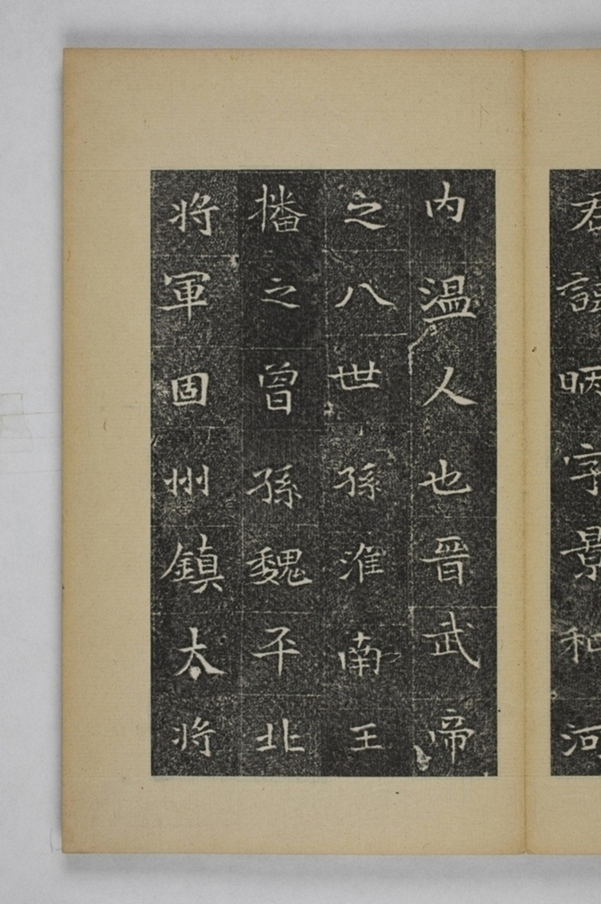 君諱昞字景和河
内温人也晉武帝
之八世孫淮南王
播之曾孫魏平北
将軍固州鎮太将